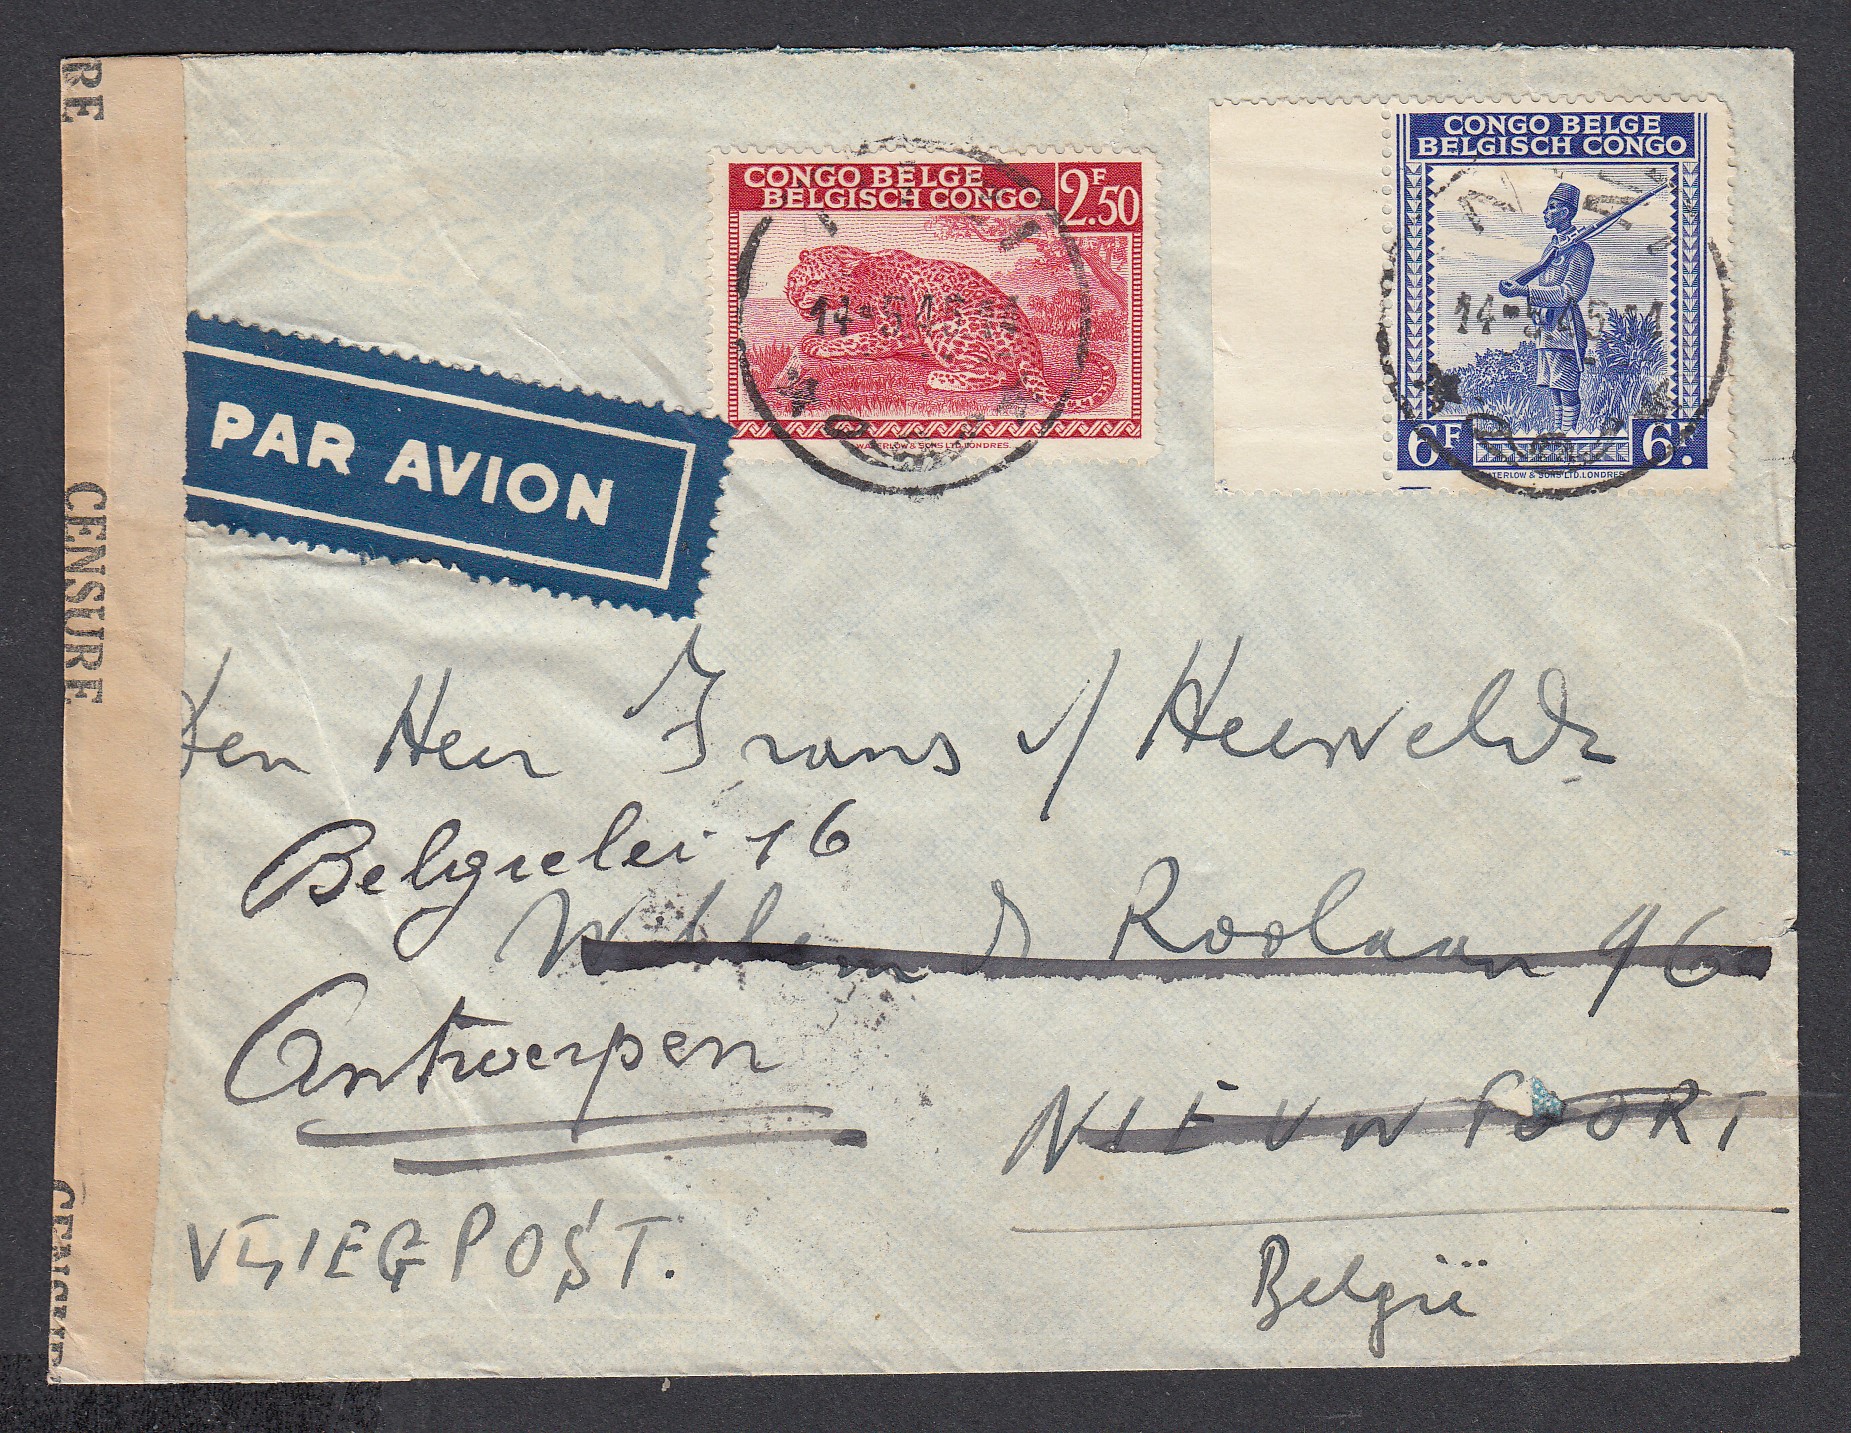 RE
CENSURE
CENSURE
PAR AVION
CONGO BELGE
BELGISCH CONGO
2.F50
WATERLOW & SONS LTD. LONDRES.
14-5 45
CONGO BELGE
BELGISCH CONGO
6F 6F.
WATERLOW & SONS LTD. LONDRES
14-5 45 11
Den Heer Frans v/ Heervelde
Belgielei 16
Willem D Roolaan 96
Antwerpen
NIEUWPOORT
VLIEGPOST.
België